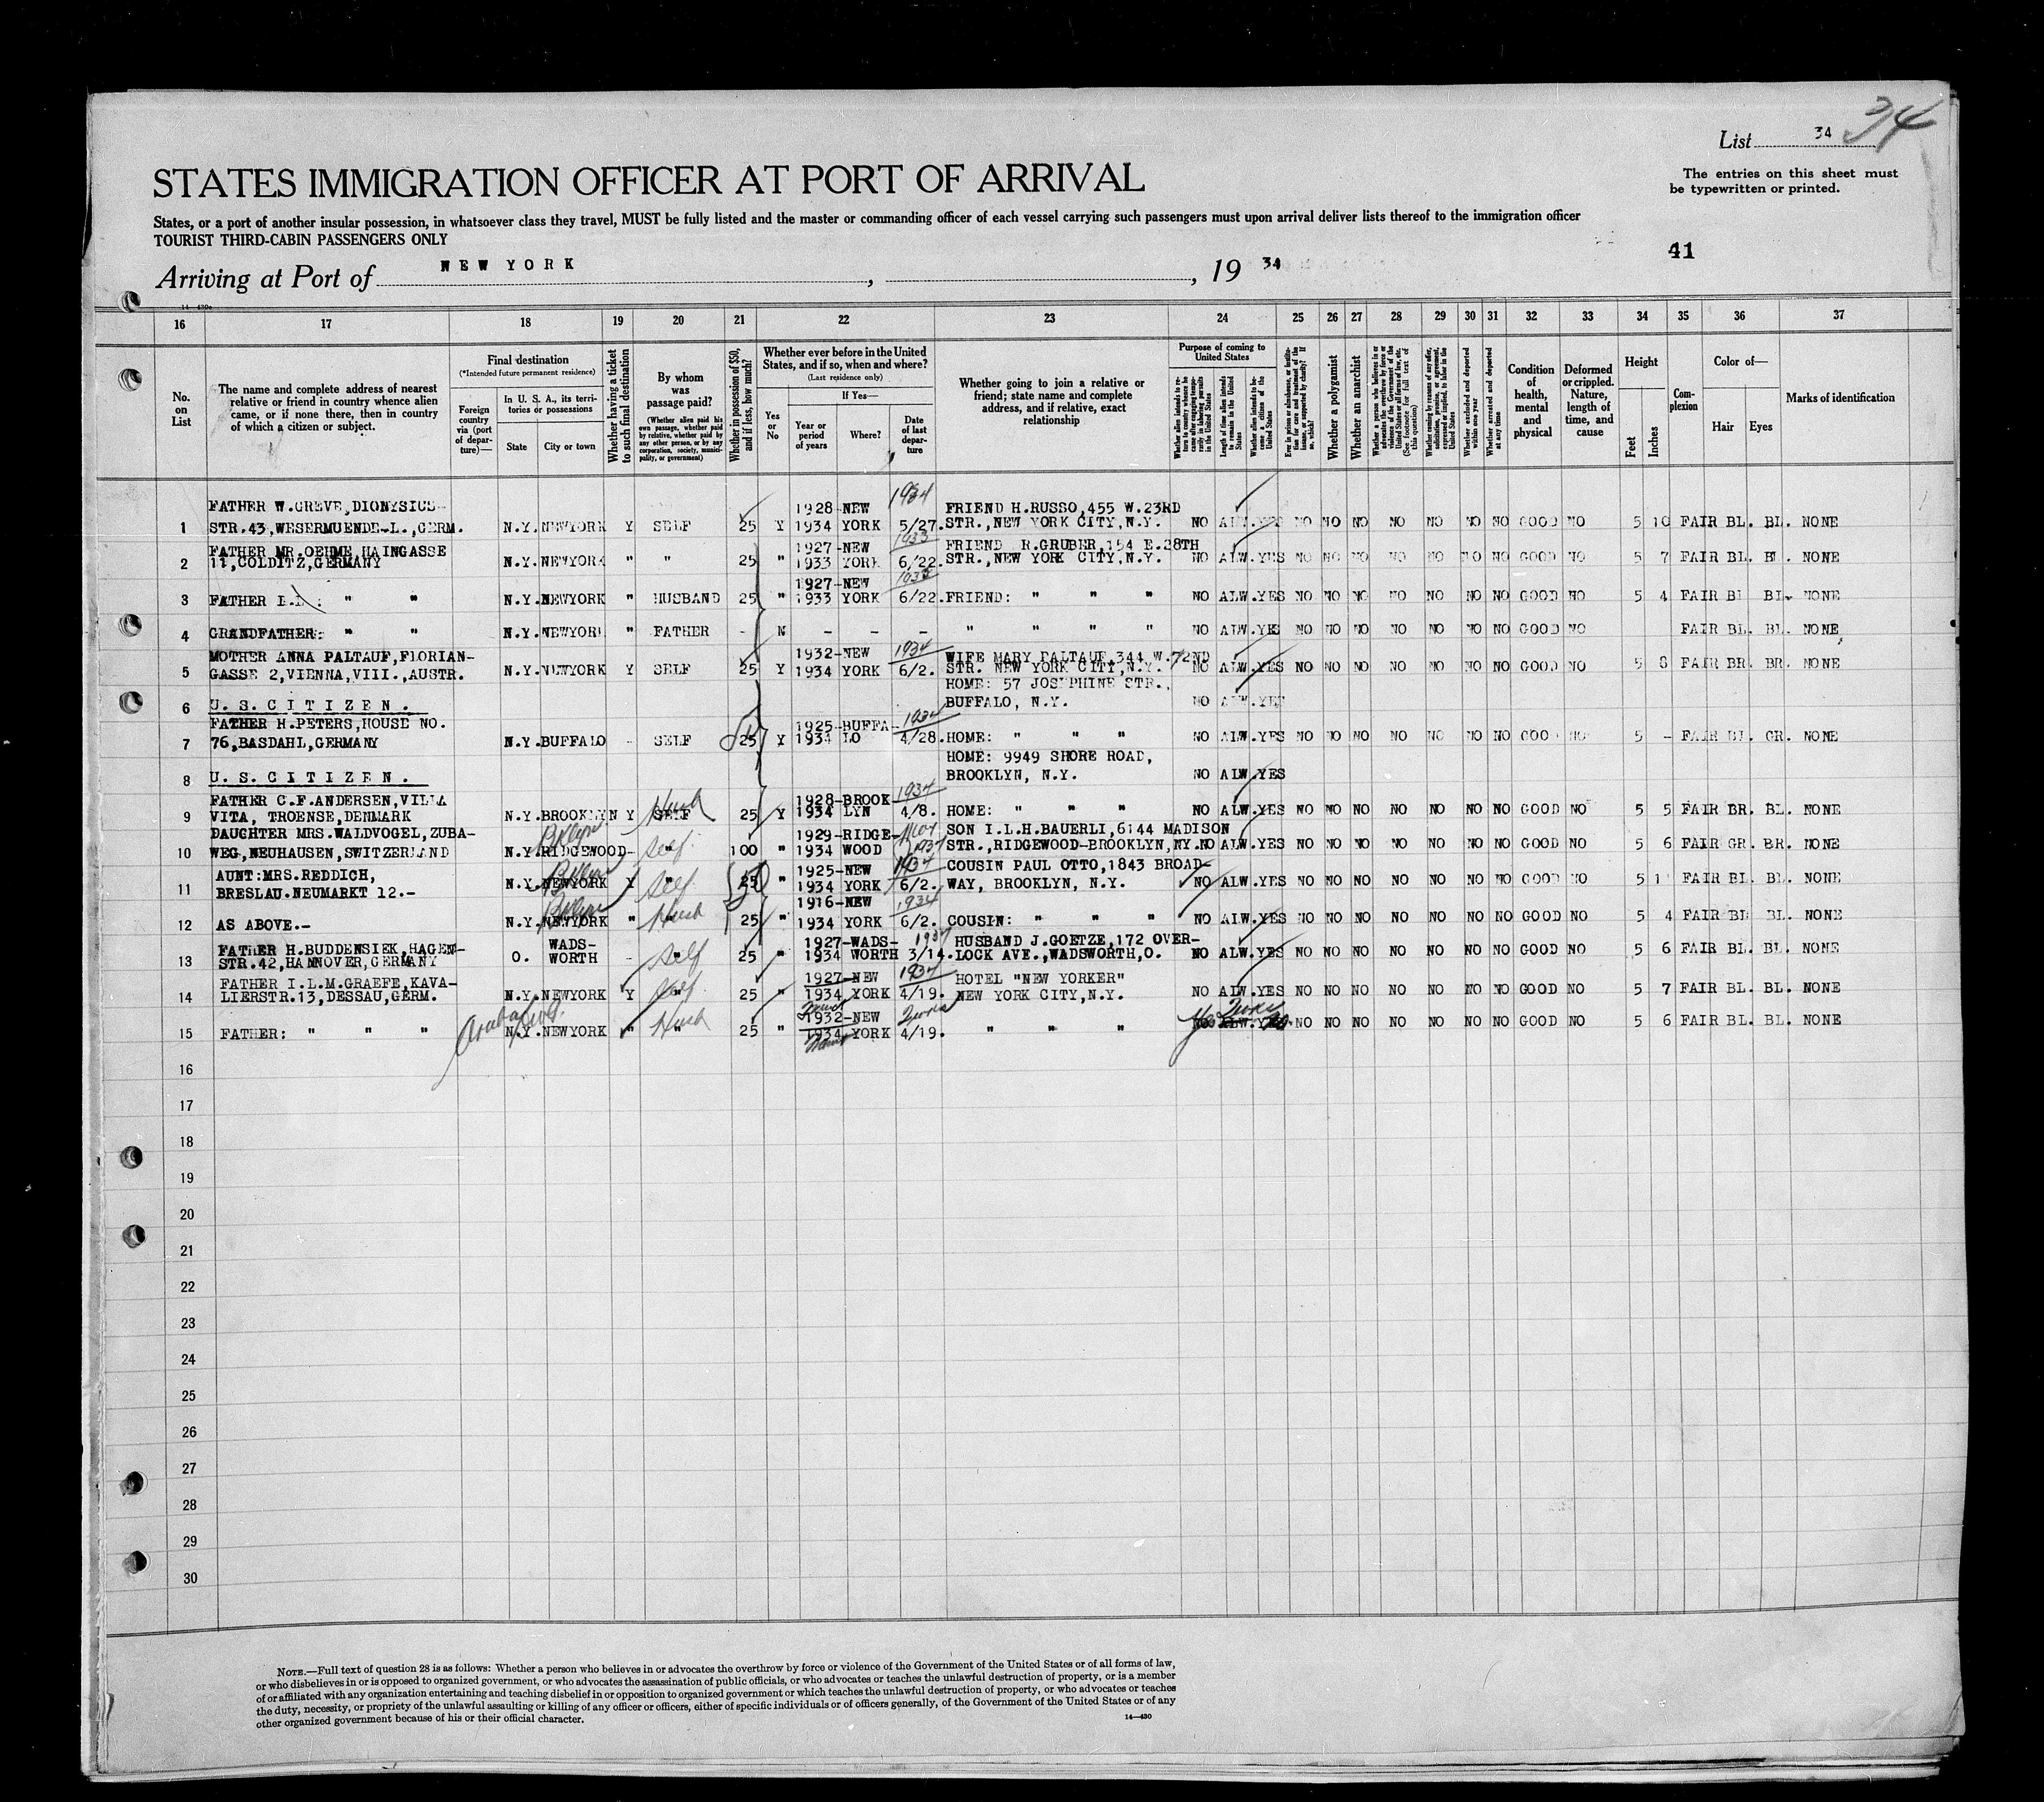 34
List 34
The entries on this sheet must
be typewritten or printed.
STATES IMMIGRATION OFFICER AT PORT OF ARRIVAL
States, or a port of another insular possession, in whatsoever class they travel, MUST be fully listed and the master or commanding officer of each vessel carrying such passengers must upon arrival deliver lists thereof to the immigration officer
TOURIST THIRD-CABIN PASSENGERS ONLY
41
Arriving at Port of NEW YORK, , 19 34
16 17 18 19 20 21 22 23 24 25 26 27 28 29 30 31 32 33 34 35 36 37
No. on List
The name and complete address of nearest relative or friend in country whence alien came, or if none there, then in country of which a citizen or subject.
Final destination
(*Intended future permanent residence)
Foreign country via (port of departure)—
In U. S. A., its territories or possessions
State
City or town
Whether having a ticket to such final destination
By whom was passage paid?
(Whether alien paid his own passage, whether paid by relative, whether paid by any other person, or by any corporation, society, municipality, or government)
Whether in possession of $50, and if less, how much?
Whether ever before in the United States, and if so, when and where?
(Last residence only)
Yes or No
If Yes—
Year or period of years
Where?
Date of last departure
Whether going to join a relative or friend; state name and complete address, and if relative, exact relationship
Purpose of coming to United States
Whether alien intends to return to country whence he came after engaging temporarily in laboring pursuits in the United States
Length of time alien intends to remain in the United States
Whether alien intends to become a citizen of the United States
Whether a polygamist
Whether an anarchist
Whether excluded and deported within one year
Whether arrested and deported at any time
Condition of health, mental and physical
Deformed or crippled. Nature, length of time, and cause
Height
Feet
Inches
Complexion
Color of—
Hair
Eyes
Marks of identification
FATHER W.GREVE,DIONYSIUS- 1928-NEW 1934 FRIEND H.RUSSO,455 W.23RD
1 STR.43,WESERMUENDE-L.,GERM. N.Y. NEWYORK Y SELF 25 Y 1934 YORK 5/27. STR.,NEW YORK CITY,N.Y. NO ALW.YES NO NO NO NO NO NO NO GOOD NO 5 10 FAIR BL. BL. NONE
FATHER MR.OEHME HAINGASSE 1927-NEW 1933 FRIEND R.GRUBER,154 E.38TH
2 11,COLDITZ,GERMANY N.Y. NEWYORK " " 25 " 1933 YORK 6/22. STR.,NEW YORK CITY,N.Y. NO ALW.YES NO NO NO NO NO NO NO GOOD NO 5 7 FAIR BL. BL. NONE
1927-NEW 1933
3 FATHER I.L.: " " N.Y. NEWYORK " HUSBAND 25 " 1933 YORK 6/22. FRIEND: " " " NO ALW.YES NO NO NO NO NO NO NO GOOD NO 5 4 FAIR BL BL. NONE
4 GRANDFATHER: " " N.Y. NEWYORK " FATHER - N - - - " " " " NO ALW.YES NO NO NO NO NO NO NO GOOD NO FAIR BL. BL. NONE
MOTHER ANNA PALTAUF,FLORIAN- 1932-NEW 1934 WIFE MARY PALTAUF,344 W.72ND
5 GASSE 2,VIENNA,VIII.,AUSTR. N.Y. NEWYORK Y SELF 25 Y 1934 YORK 6/2. STR. NEW YORK CITY,N.Y. NO ALW.YES NO NO NO NO NO NO NO GOOD NO 5 8 FAIR BR. BR. NONE
HOME: 57 JOSEPHINE STR.,
6 U.S.CITIZEN. BUFFALO, N.Y. NO ALW.YES
FATHER H.PETERS,HOUSE NO. 1925-BUFFA- 1934
7 76,BASDAHL,GERMANY N.Y. BUFFALO - SELF 25 Y 1934 LO 4/28. HOME: " " " NO ALW.YES NO NO NO NO NO NO NO GOOD NO 5 - FAIR BL. GR. NONE
HOME: 9949 SHORE ROAD,
8 U.S.CITIZEN. BROOKLYN, N.Y. NO ALW.YES
FATHER C.F.ANDERSEN,VILLA Husb 1928-BROOK- 1934
9 VITA, TROENSE,DENMARK N.Y. BROOKLYN Y SELF 25 Y 1934 LYN 4/8. HOME: " " " NO ALW.YES NO NO NO NO NO NO NO GOOD NO 5 5 FAIR BR. BL. NONE
DAUGHTER MRS.WALDVOGEL,ZUBA- Bklyn 1929-RIDGE- SON I.L.H.BAUERLI,6144 MADISON
10 WEG,NEUHAUSEN,SWITZERLAND N.Y. RIDGEWOOD- Self " 100 " 1934 WOOD 1934 STR.,RIDGEWOOD-BROOKLYN,NY. NO ALW.YES NO NO NO NO NO NO NO GOOD NO 5 6 FAIR GR. BR. NONE
AUNT:MRS.REDDICH, Bklyn 1925-NEW 1934 COUSIN PAUL OTTO,1843 BROAD-
11 BRESLAU.NEUMARKT 12.- N.Y. NEWYORK Y Self " 25 50 " 1934 YORK 6/2. WAY, BROOKLYN, N.Y. NO ALW.YES NO NO NO NO NO NO NO GOOD NO 5 FAIR BL. BL. NONE
Bklyn 1916-NEW 1934
12 AS ABOVE.- N.Y. NEWYORK " Husb " 25 " 1934 YORK 6/2. COUSIN: " " " NO ALW.YES NO NO NO NO NO NO NO GOOD NO 5 4 FAIR BL BL. NONE
FATHER H.BUDDENSIEK,HAGEN- WADS- 1927-WADS- 1934 HUSBAND J.GOETZE,172 OVER-
13 STR.42,HANNOVER,GERMANY O. WORTH - Self " 25 " 1934 WORTH 3/14. LOCK AVE.,WADSWORTH,O. NO ALW.YES NO NO NO NO NO NO NO GOOD NO 5 6 FAIR BL. BL. NONE
FATHER I.L.M.GRAEFE,KAVA- 1927-NEW 1934 HOTEL "NEW YORKER"
14 LIERSTR.13,DESSAU,GERM. N.Y. NEWYORK Y Self " 25 " 1934 YORK 4/19. NEW YORK CITY,N.Y. NO ALW.YES NO NO NO NO NO NO NO GOOD NO 5 7 FAIR BL. BL. NONE
1932-NEW
15 FATHER: " " " N.Y. NEWYORK " Husb " 25 " 1934 YORK 4/19. " " " Yes NO ALW.YES NO NO NO NO NO NO NO NO GOOD NO 5 6 FAIR BL. BL. NONE
16
17
18
19
20
21
22
23
24
25
26
27
28
29
30
NOTE.—Full text of question 28 is as follows: Whether a person who believes in or advocates the overthrow by force or violence of the Government of the United States or of all forms of law,
or who disbelieves in or is opposed to organized government, or who advocates the assassination of public officials, or who advocates or teaches the unlawful destruction of property, or is a member
of or affiliated with any organization entertaining and teaching disbelief in or opposition to organized government or which teaches the unlawful destruction of property, or who advocates or teaches
the duty, necessity, or propriety of the unlawful assaulting or killing of any officer or officers, either of specific individuals or of officers generally, of the Government of the United States or of any
other organized government because of his or their official character.
14—430